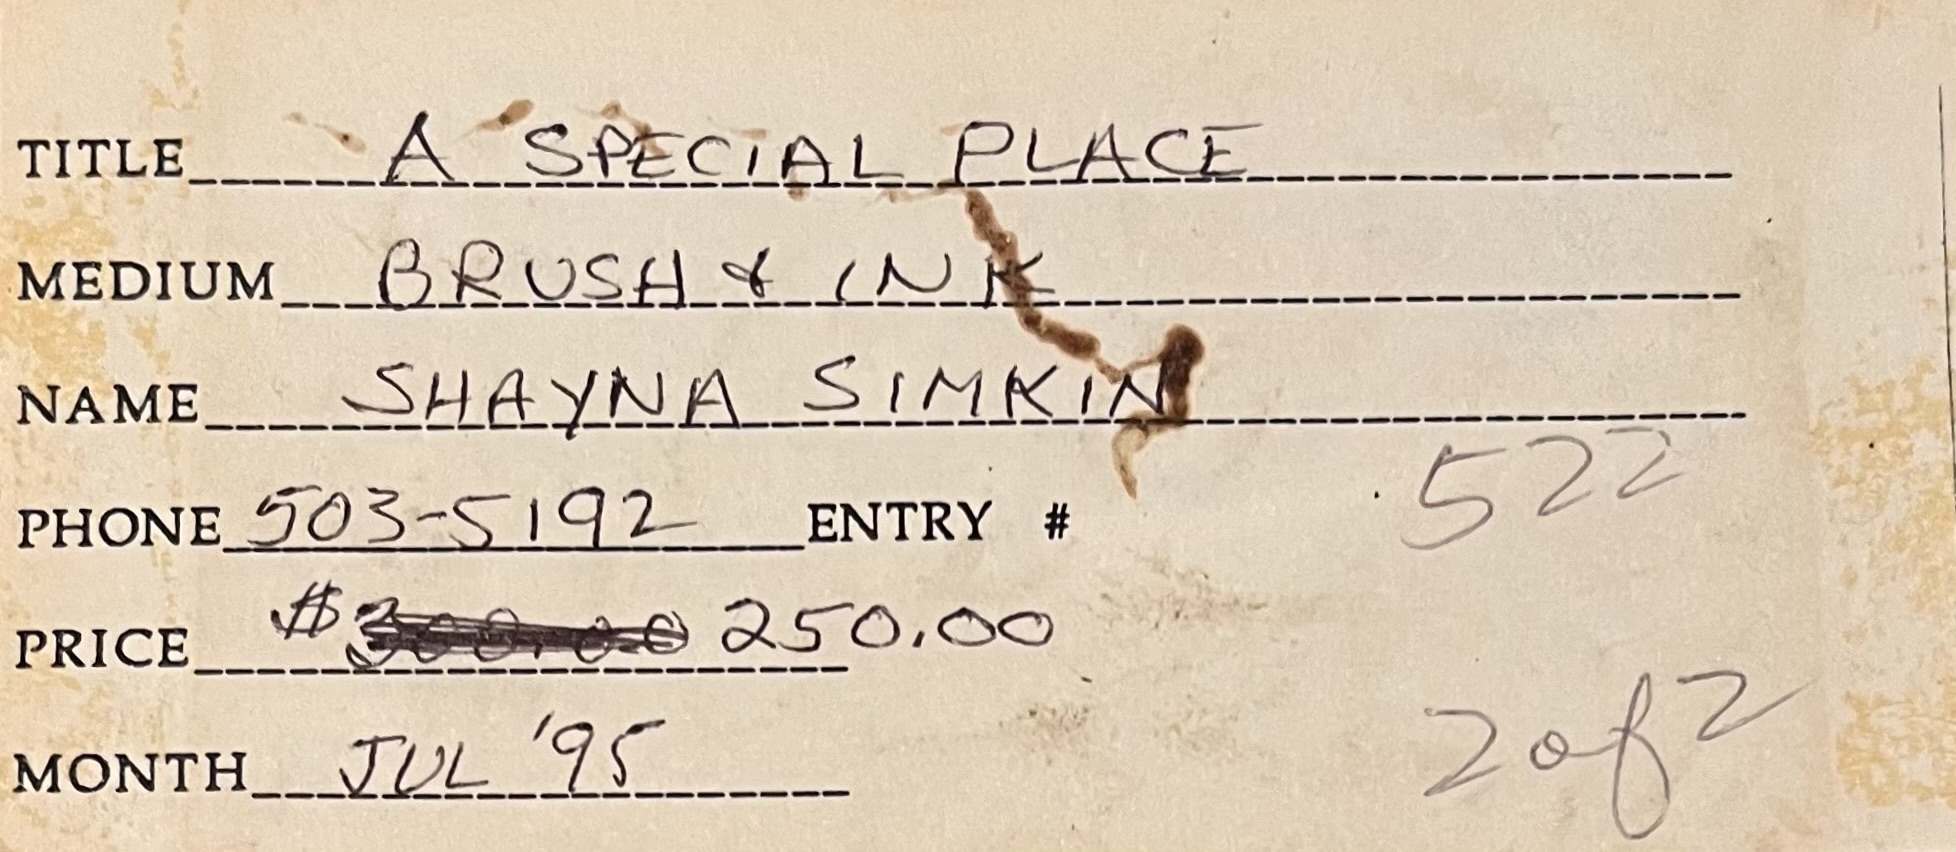 TITLE A SPECIAL PLACE
MEDIUM BRUSH & INK
NAME SHAYNA SIMKIN
PHONE 503-5192 ENTRY # 522
PRICE $ 300.00 250.00
MONTH JUL '95
2 of 2